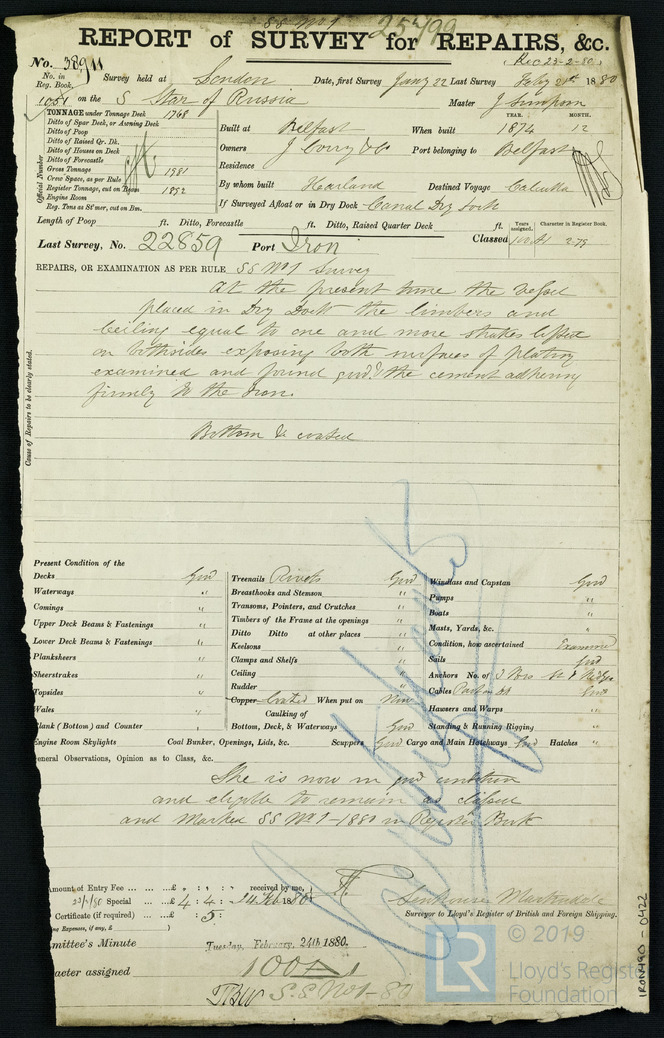 SS No 1 25/99
REPORT of SURVEY for REPAIRS, &c.
No. 38911
Rec 23-2-80
No. in Reg. Book. Survey held at London Date, first Survey Jany 22 Last Survey Feby 21st 1880
1051 on the S Star of Russia Master J Simpson
TONNAGE under Tonnage Deck 1768
Ditto of Spar Deck, or Awning Deck
Ditto of Poop
Ditto of Raised Qr. Dk.
Ditto of Houses on Deck
Ditto of Forecastle
Gross Tonnage 1981
Crew Space, as per Rule
Register Tonnage, cut on Beam 1892
Engine Room
Reg. Tons as St'mer, cut on Bm.
Official Number
Built at Belfast When built 1874 12
YEAR. MONTH.
Owners J Corry & Co Port belonging to Belfast
Residence
By whom built Harland Destined Voyage Calcutta
If Surveyed Afloat or in Dry Dock Canal Dry Dock
Length of Poop ft. Ditto, Forecastle ft. Ditto, Raised Quarter Deck ft.
Years assigned. Character in Register Book.
Last Survey, No. 22859 Port Iron Classed 100A1 2.79
REPAIRS, OR EXAMINATION AS PER RULE SS No 1 Survey
At the present time the Vessel
placed in Dry Dock the limbers and
ceiling equal to one and more strakes lifted
on bothsides exposing both surfaces of plating
examined and found good & the cement adhering
firmly to the Iron.
Bottom &c coated
Cause of Repairs to be clearly stated.
Present Condition of the
Decks Good
Waterways "
Comings "
Upper Deck Beams & Fastenings "
Lower Deck Beams & Fastenings "
Planksheers "
Sheerstrakes "
Topsides "
Wales "
Plank (Bottom) and Counter "
Engine Room Skylights
Treenails Rivets Good
Breasthooks and Stemson "
Transoms, Pointers, and Crutches "
Timbers of the Frame at the openings "
Ditto Ditto at other places "
Keelsons "
Clamps and Shelfs "
Ceiling "
Rudder "
Copper Coated When put on Now
Caulking of
Bottom, Deck, & Waterways Good
Coal Bunker, Openings, Lids, &c. Scuppers Good Cargo and Main Hatchways Good Hatches "
Windlass and Capstan Good
Pumps "
Boats "
Masts, Yards, &c. "
Condition, how ascertained Examined
Sails Good
Anchors No. of 3 Bors
Cables Good
Hawsers and Warps "
Standing & Running Rigging "
General Observations, Opinion as to Class, &c.
She is now in good condition
and eligible to remain as classed
and Marked SS No 1-1880 in Register Book
Amount of Entry Fee ... ... ... £ : : received by me,
23/2/80 Special ... £ 4 : 4 : 24 Feb 1880
Certificate (if required) ... £ : 5 :
Surveyor to Lloyd's Register of British and Foreign Shipping.
mmittee's Minute Tuesday, February, 24th 1880.
acter assigned 100A1
S.S. No 1-80
© 2019
LR
Lloyd's Register
Foundation
IRON190-0422